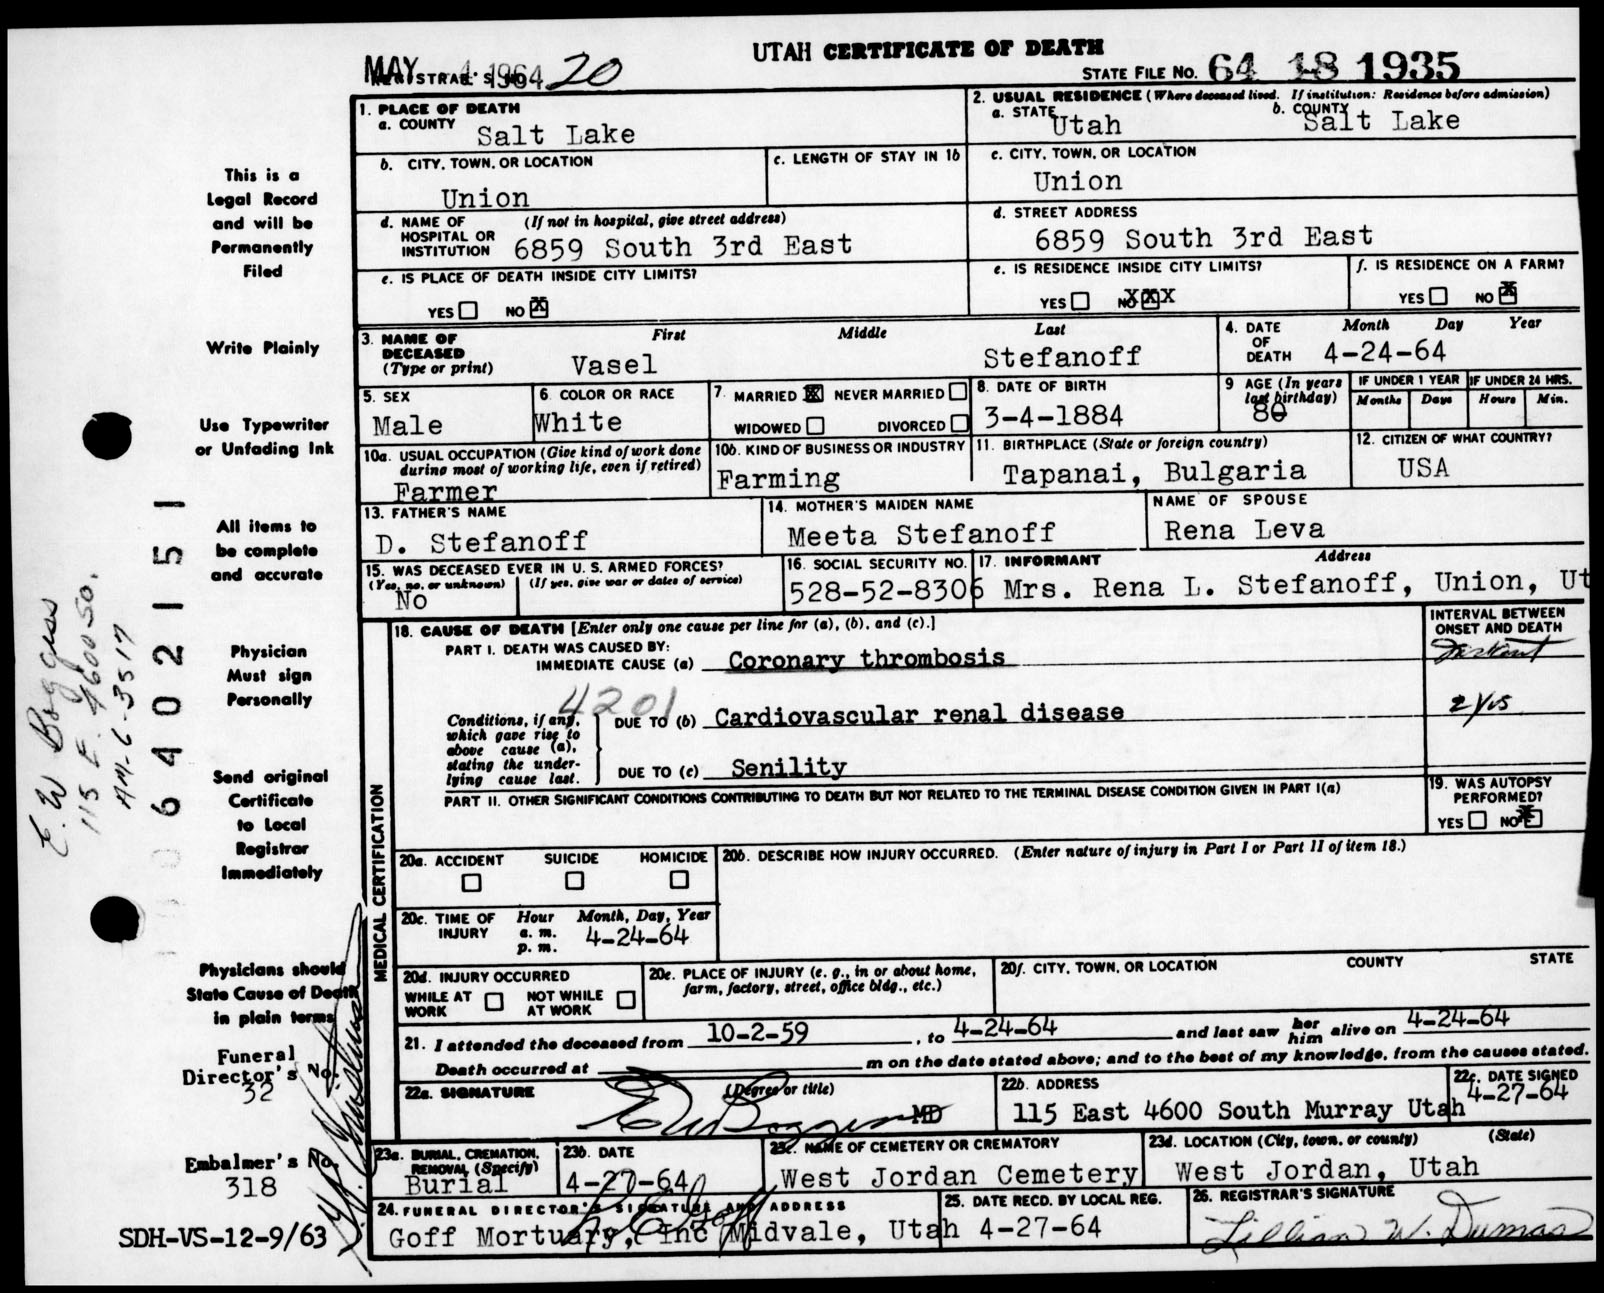 UTAH CERTIFICATE OF DEATH
MAY 4 1964
REGISTRAR'S NO. 20
STATE FILE NO. 64 18 1935
1. PLACE OF DEATH
a. COUNTY Salt Lake
2. USUAL RESIDENCE (Where deceased lived. If institution: Residence before admission)
a. STATE Utah b. COUNTY Salt Lake
b. CITY, TOWN, OR LOCATION Union
c. LENGTH OF STAY IN 1b
c. CITY, TOWN, OR LOCATION Union
d. NAME OF HOSPITAL OR INSTITUTION (If not in hospital, give street address) 6859 South 3rd East
d. STREET ADDRESS 6859 South 3rd East
e. IS PLACE OF DEATH INSIDE CITY LIMITS?
YES NO X
e. IS RESIDENCE INSIDE CITY LIMITS?
YES NO XXX
f. IS RESIDENCE ON A FARM?
YES NO X
3. NAME OF DECEASED (Type or print) First Middle Last
Vasel Stefanoff
4. DATE OF DEATH Month Day Year
4-24-64
5. SEX Male
6. COLOR OR RACE White
7. MARRIED X NEVER MARRIED
WIDOWED DIVORCED
8. DATE OF BIRTH 3-4-1884
9 AGE (In years last birthday) 80
IF UNDER 1 YEAR Months Days
IF UNDER 24 HRS. Hours Min.
10a. USUAL OCCUPATION (Give kind of work done during most of working life, even if retired) Farmer
10b. KIND OF BUSINESS OR INDUSTRY Farming
11. BIRTHPLACE (State or foreign country) Tapanai, Bulgaria
12. CITIZEN OF WHAT COUNTRY? USA
13. FATHER'S NAME D. Stefanoff
14. MOTHER'S MAIDEN NAME Meeta Stefanoff
NAME OF SPOUSE Rena Leva
15. WAS DECEASED EVER IN U. S. ARMED FORCES?
(Yes, no, or unknown) (If yes, give war or dates of service)
No
16. SOCIAL SECURITY NO. 528-52-8306
17. INFORMANT Address
Mrs. Rena L. Stefanoff, Union, Ut
MEDICAL CERTIFICATION
18. CAUSE OF DEATH [Enter only one cause per line for (a), (b), and (c).]
INTERVAL BETWEEN ONSET AND DEATH
PART I. DEATH WAS CAUSED BY:
IMMEDIATE CAUSE (a) Coronary thrombosis Instant
4201
Conditions, if any, which gave rise to above cause (a), stating the underlying cause last.
DUE TO (b) Cardiovascular renal disease 2 yrs
DUE TO (c) Senility
PART II. OTHER SIGNIFICANT CONDITIONS CONTRIBUTING TO DEATH BUT NOT RELATED TO THE TERMINAL DISEASE CONDITION GIVEN IN PART I(a)
19. WAS AUTOPSY PERFORMED?
YES NO X
20a. ACCIDENT SUICIDE HOMICIDE
20b. DESCRIBE HOW INJURY OCCURRED. (Enter nature of injury in Part I or Part II of item 18.)
20c. TIME OF INJURY Hour a. m. p. m. Month, Day, Year
4-24-64
20d. INJURY OCCURRED
WHILE AT WORK NOT WHILE AT WORK
20e. PLACE OF INJURY (e. g., in or about home, farm, factory, street, office bldg., etc.)
20f. CITY, TOWN, OR LOCATION COUNTY STATE
21. I attended the deceased from 10-2-59, to 4-24-64 and last saw her him alive on 4-24-64
Death occurred at m on the date stated above; and to the best of my knowledge, from the causes stated.
22a. SIGNATURE (Degree or title)
E W Boggess MD
22b. ADDRESS 115 East 4600 South Murray Utah
22c. DATE SIGNED 4-27-64
23a. BURIAL, CREMATION, REMOVAL (Specify) Burial
23b. DATE 4-27-64
23c. NAME OF CEMETERY OR CREMATORY West Jordan Cemetery
23d. LOCATION (City, town, or county) (State)
West Jordan, Utah
24. FUNERAL DIRECTOR'S SIGNATURE AND ADDRESS
Goff Mortuary, Inc Midvale, Utah
25. DATE RECD. BY LOCAL REG. 4-27-64
26. REGISTRAR'S SIGNATURE
Lillian W. Dumas
This is a
Legal Record
and will be
Permanently
Filed
Write Plainly
Use Typewriter
or Unfading Ink
All items to
be complete
and accurate
Physician
Must sign
Personally
Send original
Certificate
to Local
Registrar
Immediately
Physicians should
State Cause of Death
in plain terms
Funeral
Director's No.
32
Embalmer's No.
318
SDH-VS-12-9/63
E. W Boggess
115 E. 4600 So.
AM-6-3517
6402151